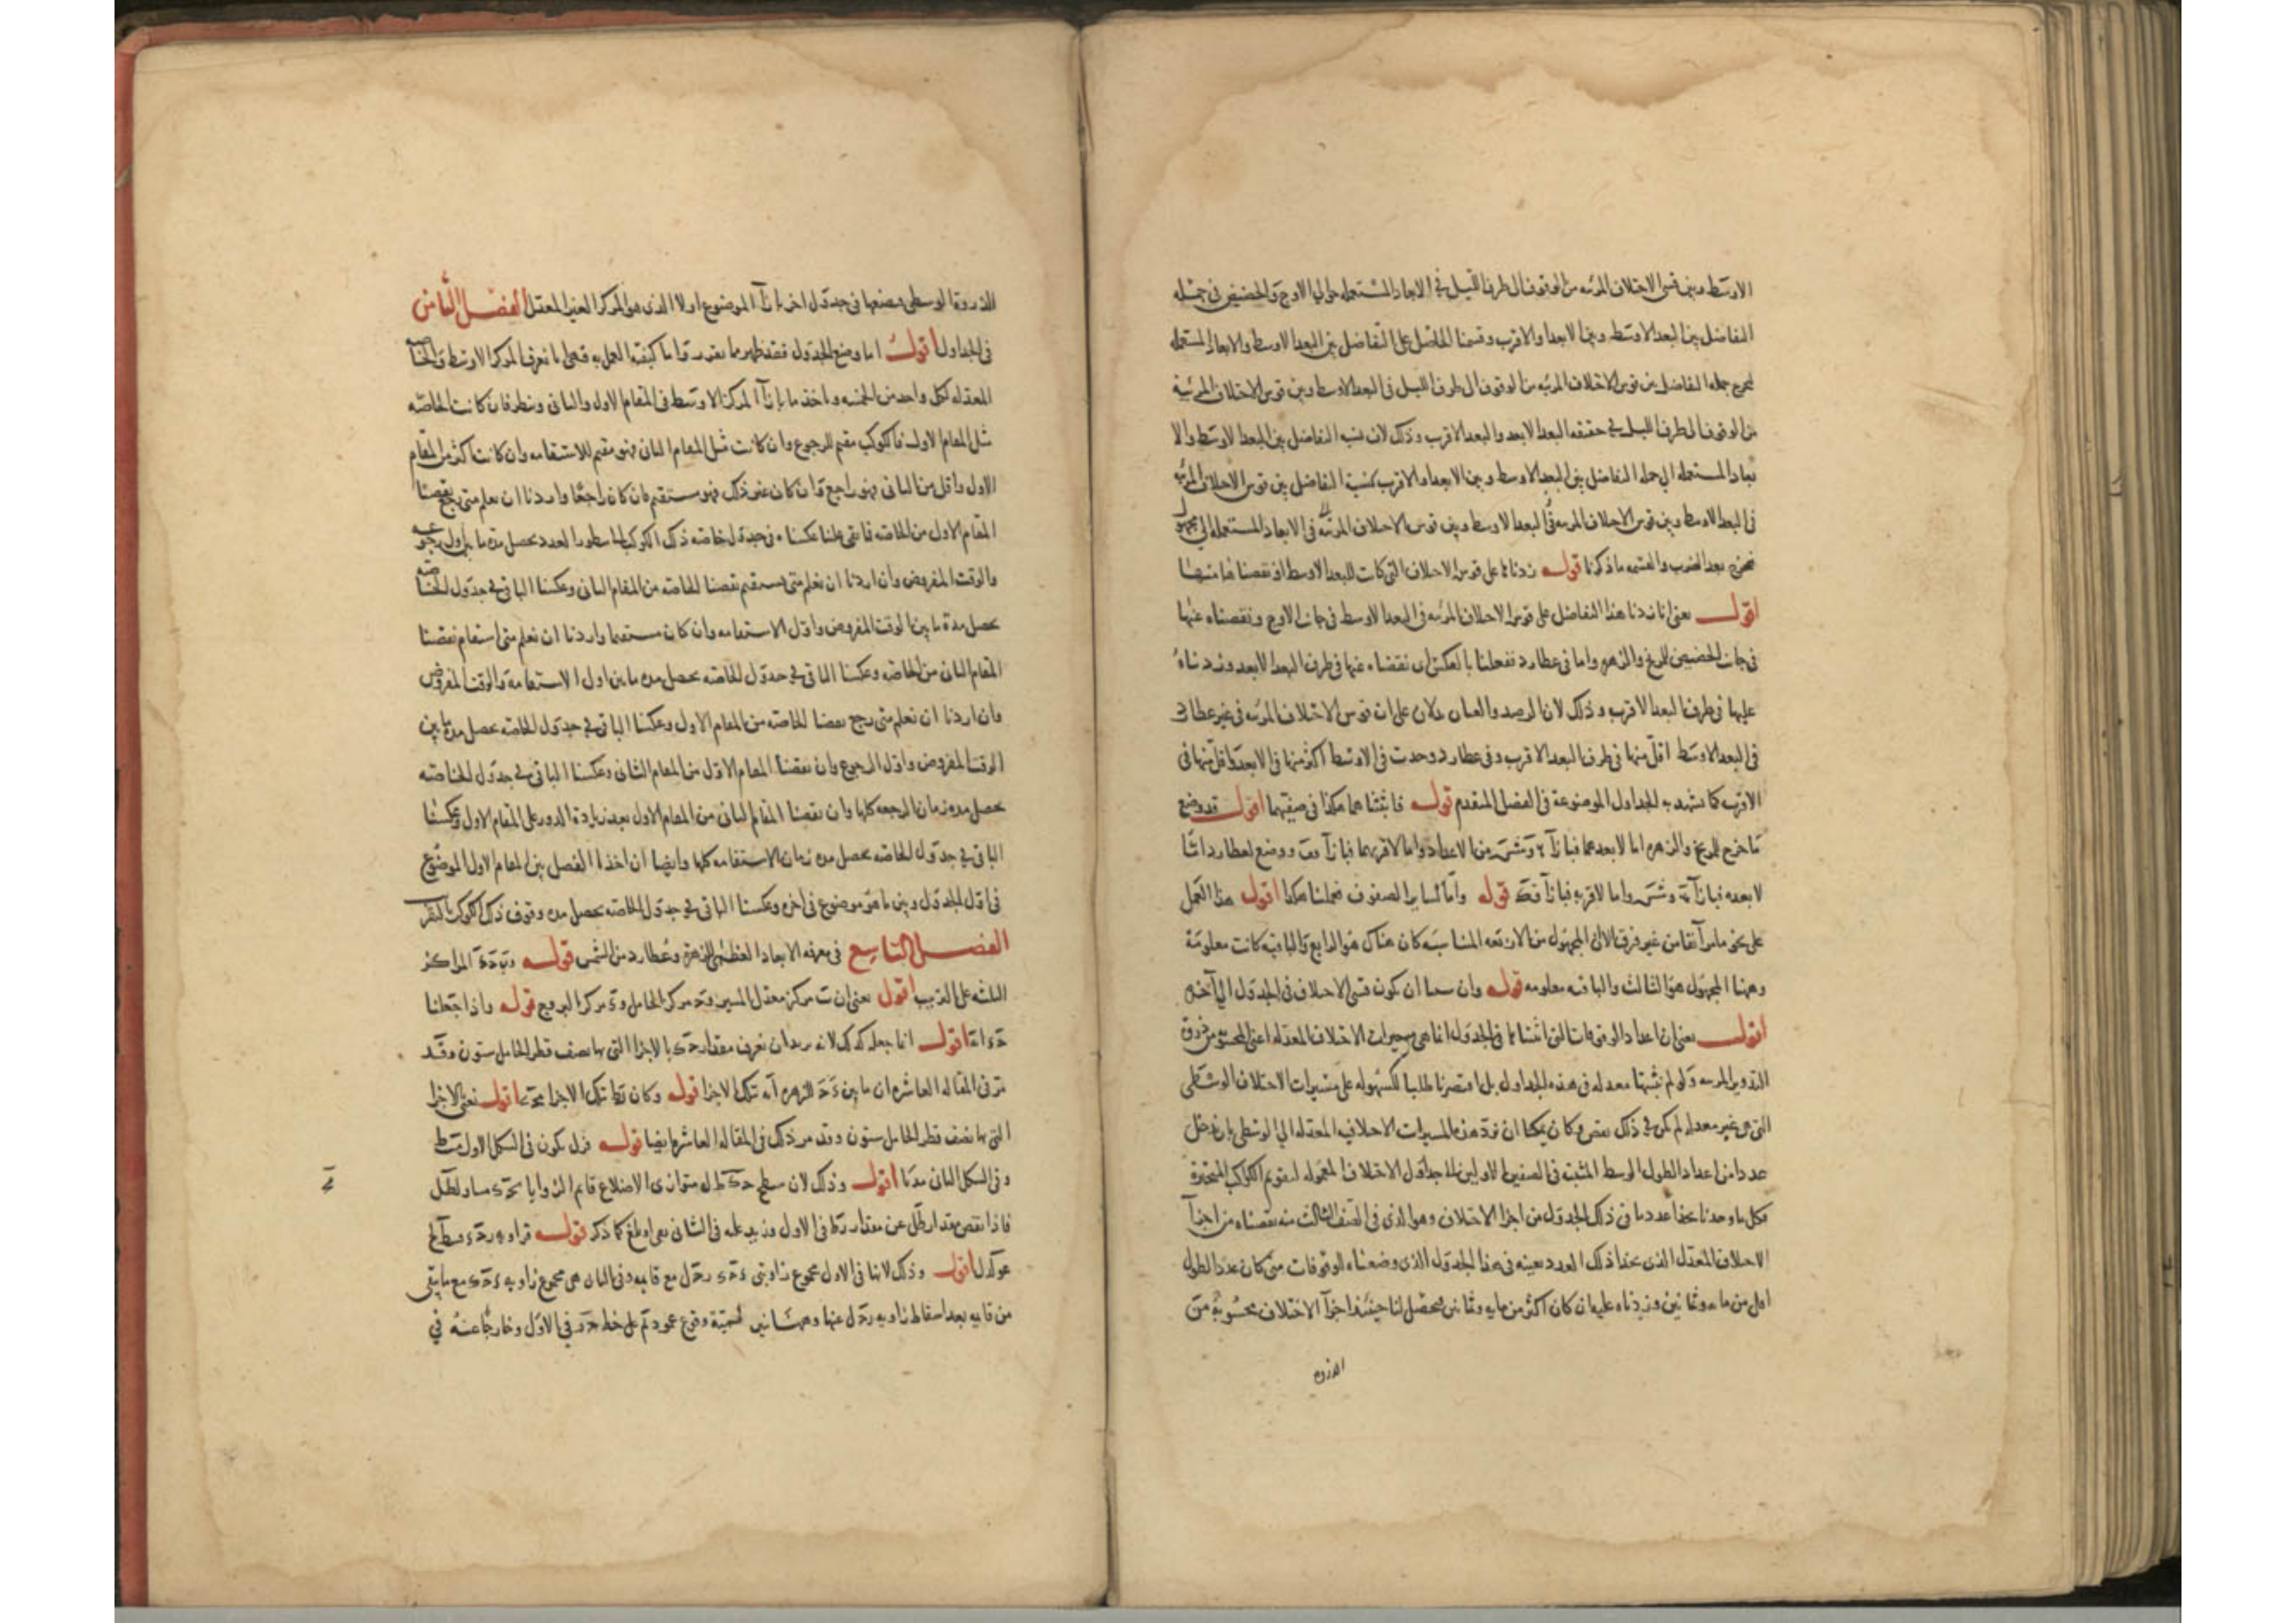 الاوسط وبين قسى الاختلاف المرئيه من الوقوف الى طرف الليل فى الابعاد المستعمله حوالى الاوج والحضيض فى جمله
التفاضل بين البعد الاوسط وبين الابعد او الاقرب وقسمنا الحاصل على التفاضل بين البعد الاوسط والابعاد المستعمله
ليخرج جمله التفاضل بين قوس الاختلاف المرئيه من الوقوف الى طرف الليل فى البعد الاوسط وبين قوس الاختلاف المرئية
من الوقوف الى طرف الليل فى حقيقه البعد الابعد والبعد الاقرب وذلك لان نسبه التفاضل بين البعد الاوسط والا
بعاد المستعمله الى جمله التفاضل بين البعد الاوسط وبين الابعد او الاقرب كنسبة التفاضل بين قوس الاختلاف المرئيه
فى البعد الاوسط وبين قوس الاختلاف المرئيه فى الابعاد المستعمله الى مجهول
فيخرج بعد الضرب والقسمه ما ذكرنا قوله زدناها على قوس الاختلاف التى كانت للبعد الاوسط او نقصناها منها
اقول يعنى انا زدنا هذا التفاضل على قوس الاختلاف المرئيه فى البعد الاوسط فى جانب الاوج ونقصناه عنها
فى جانب الحضيض للمريخ والزهره واما فى عطارد ففعلنا بالعكس اى نقصناه عنها فى طرف البعد الابعد وزدناه
عليها فى طرف البعد الاقرب وذلك لان الرصد والعيان يدلان على ان قوس الاختلاف المرئيه فى غير عطارد
فى البعد الاوسط اقل منها فى طرف البعد الاقرب وفى عطارد وجدت فى الاوسط اكثر منها فى الابعد واقل منها فى
الاقرب كما تشهد به الجداول الموضوعة فى الفصل المتقدم قوله فاثبتناهما هكذا فى صفيهما اقول قد وضع
ما خرج للمريخ والزهره اما لابعدهما فبازآ وشس من الاعداد واما لاقربهما فبازآ قف ووضع لعطارد اما
لابعده فبازآ وشس واما لاقربه فبازآ قوله واما لساير الصفوف فعملنا هكذا اقول هذا العمل
على نحو ما مر آنفا من غير فرق الا ان المجهول من الاربعه المتناسبه كان هناك هو الرابع والباقيه كانت معلومة
وههنا المجهول هو الثالث والباقيه معلومه قوله وان سما ان كون قسى الاختلاف فى الجدول الى آخره
اقول يعنى ان اعداد الوقوفات التى اثبتناها فى الجدول انما هى مسيرات الاختلاف المعدله اعنى المحسوبه من ذروة
التدوير المرئيه ولو لم نثبتها معدله فى هذه الجداول بل اقتصرنا طلبا للسهوله على مسيرات الاختلاف الوسطى
التى هى غير معدله لم يكن فى ذلك نقص وكان يمكننا ان نرد هذه المسيرات الاختلافيه المعدله الى الوسطى بان ندخل
عددا من اعداد الطول الوسط المثبت فى الصفين الاولين الى جداول الاختلاف المعموله لتقويم الكواكب المتحيرة
فكل ما وجدنا بحذا عددنا فى ذلك الجدول من اجزا الاختلاف وهو الذى فى الصف الثالث منه نقصناه من اجزآ
الاختلاف المعدل الذى بحذا ذلك العدد بعينه فى هذا الجدول الذى وضعناه للوقوفات متى كان عدد الطول
اقل من مايه وثمانين وزدناه عليها ان كان اكثر من مايه وثمانين فيحصل لنا حينئذ اجزآ الاختلاف محسوبة من
الذروه
الذروة الوسطى نضعها فى جدول اخر بازآ الموضوع اولا الذى هو المركز الغير المعدل الفصل الثامن
فى الجداول اقول اما وضع الجدول فقد ظهر مما تقدم واما كيفية العمل به فهى ان نعرف المركز الاوسط والخاصه
المعدله لكل واحد من الخمسه وناخذ ما بازآ المركز الاوسط فى المقام الاول والثانى وننظر فان كانت الخاصه
مثل المقام الاول فالكوكب مقيم للرجوع وان كانت مثل المقام الثانى فهو مقيم للاستقامه وان كانت اكثر من المقام
الاول واقل من الثانى فهو راجع وان كان غير ذلك فهو مستقيم فان كان راجعا واردنا ان نعلم متى رجع نقصنا
المقام الاول من الخاصه فما بقى عكسناه فى جدول خاصه ذلك الكوكب الى سطور العدد يحصل مده ما بين اول رجوعه
والوقت المفروض وان اردنا ان نعلم متى يستقيم نقصنا الخاصه من المقام الثانى وعكسنا الباقى فى جدول الخاصه
يحصل مدة ما بين الوقت المفروض واول الاستقامه وان كان مستقيما واردنا ان نعلم متى استقام نقصنا
المقام الثانى من الخاصه وعكسنا الباقى فى جدول الخاصه يحصل مده ما بين اول الاستقامة والوقت المفروض
وان اردنا ان نعلم متى رجع نقصنا الخاصه من المقام الاول وعكسنا الباقى فى جدول الخاصه يحصل مدة ما بين
الوقت المفروض واول الرجوع وان نقصنا المقام الاول من المقام الثانى وعكسنا الباقى فى جدول الخاصه
يحصل مده زمان الرجعه كلها وان نقصنا المقام الثانى من المقام الاول بعد زيادة الدور على المقام الاول وعكسنا
الباقى فى جدول الخاصه يحصل مده زمان الاستقامه كلها وايضا ان اخذنا الفضل بين المقام الاول الموضوع
فى اول الجدول وبين ما هو موضوع فى اخره وعكسنا الباقى فى جدول الخاصه يحصل مده وقوف ذلك الكوكب
الفصل التاسع فى معرفه الابعاد العظمى للزهرة وعطارد من الشمس قوله المراكز
الثلثه على الترتيب اقول يعنى ان ت مركز معدل المسير مركز الحامل و مركز البروج قوله واذا جعلنا
اقول انما جعله كذلك لانه يريد ان نعرف مقدار بالاجزا التى بها نصف قطر الحامل ستون وقد
مر فى المقاله العاشره ان ما بين للزهره تلك الاجزا قوله وكان تلك الاجزا اقول يعنى الاجزا
التى بها نصف قطر الحامل ستون وقد مر ذلك فى المقاله العاشره ايضا قوله يكون فى الشكل الاول
وفى الشكل الثانى اقول وذلك لان سطح متوازى الاضلاع قايم الزوايا مساو
فاذا نقص مقدار عن مقدار فى الاول وزيد عليه فى الثانى كما ذكر قوله فزاويه
اقول وذلك لانها فى الاول مجموع زاويتى مع قايمه وفى الثانى هى مجموع زاويه مع ما يبقى
من قايمه بعد اسقاط زاويه عنها وقوع عمود على خط فى الاول وخارجا عنه فى